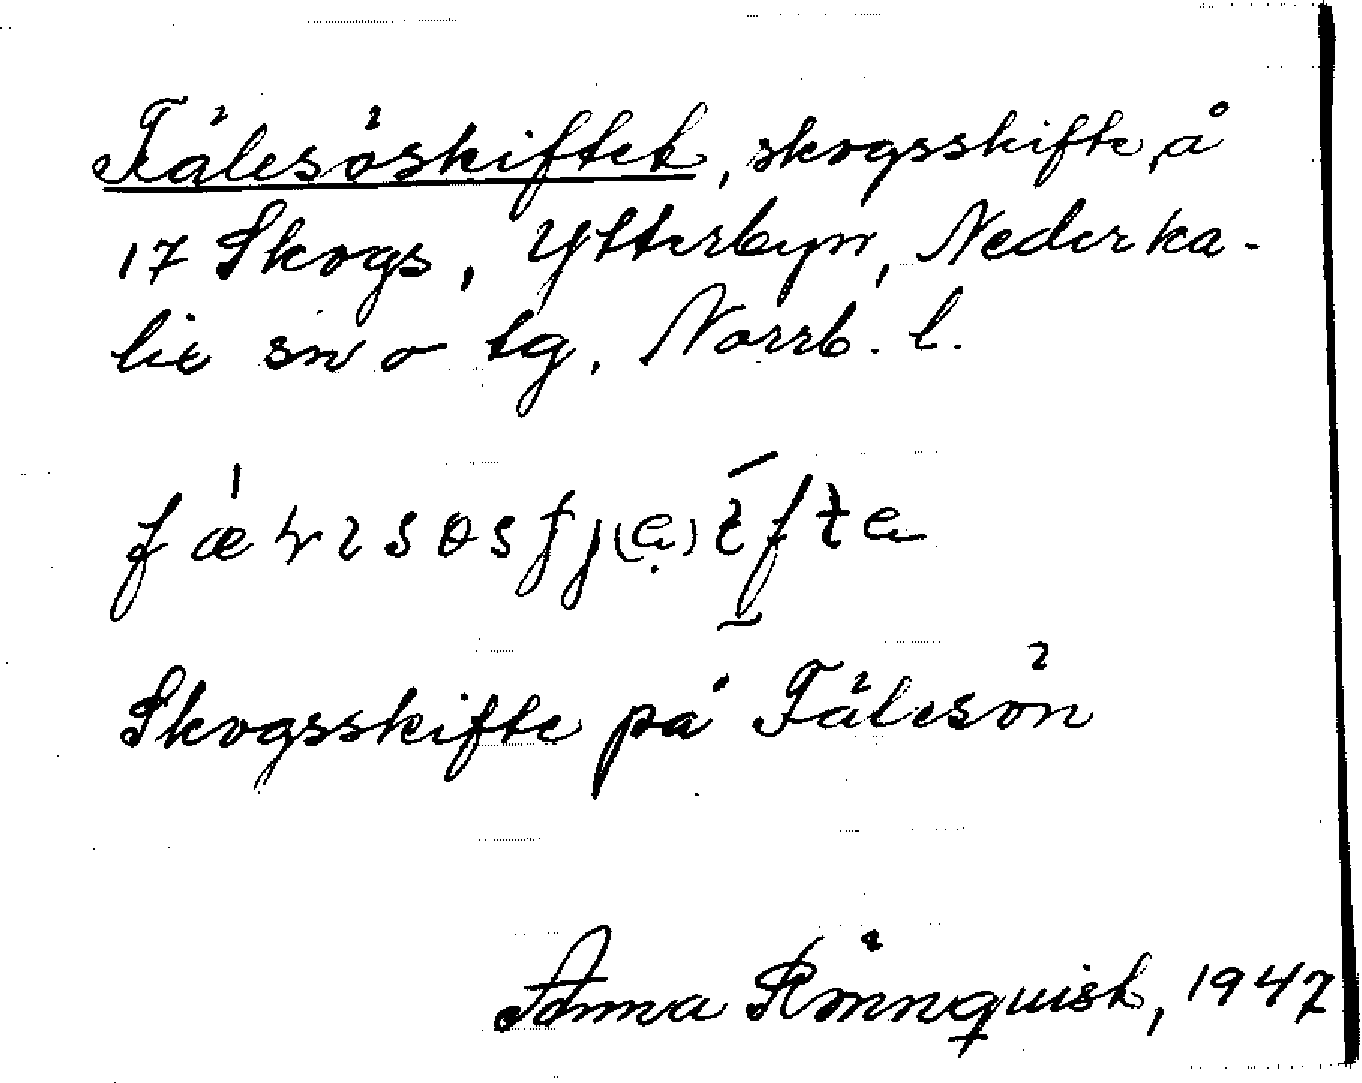 Fälesöskiftet, skogsskifte å
17 Skogs, Ytterbyn, Nederka-
lix sn o tg, Norrb. l.
Skogsskifte på Fälesön
Anna Rönnquist, 1947